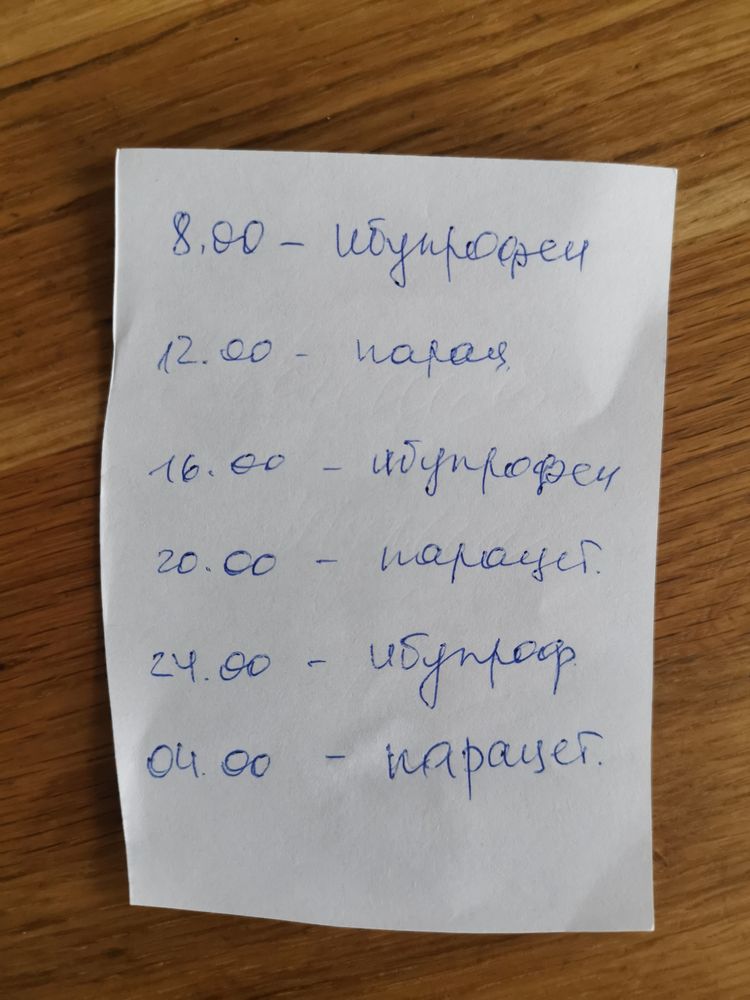 8.00 - Ибупрофен
12.00 - парац
16.00 - ибупрофен
20.00 - парацет.
24.00 - ибупроф.
04.00 - парацет.